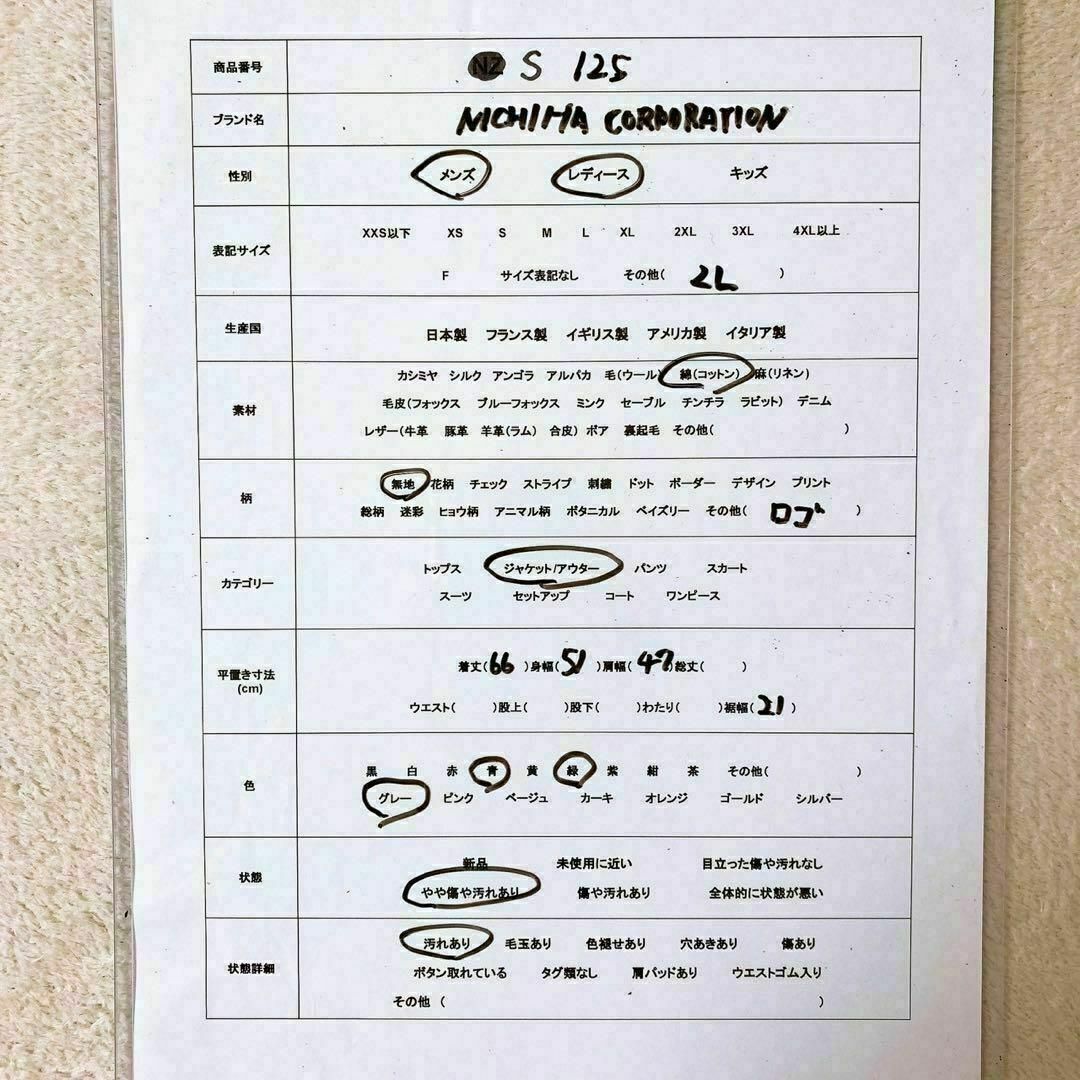 商品番号 NZ S 125
ブランド名 NICHIHA CORPORATION
性別 メンズ レディース キッズ
XXS以下 XS S M L XL 2XL 3XL 4XL以上
表記サイズ
F サイズ表記なし その他( 2L )
生産国 日本製 フランス製 イギリス製 アメリカ製 イタリア製
カシミヤ シルク アンゴラ アルパカ 毛(ウール) 綿(コットン) 麻(リネン)
素材 毛皮(フォックス ブルーフォックス ミンク セーブル チンチラ ラビット) デニム
レザー(牛革 豚革 羊革(ラム) 合皮) ボア 裏起毛 その他( )
無地 花柄 チェック ストライプ 刺繍 ドット ボーダー デザイン プリント
柄
総柄 迷彩 ヒョウ柄 アニマル柄 ボタニカル ペイズリー その他( ロゴ )
トップス ジャケット/アウター パンツ スカート
カテゴリー
スーツ セットアップ コート ワンピース
着丈(66)身幅(51)肩幅(47)総丈( )
平置き寸法
(cm)
ウエスト( )股上( )股下( )わたり( )裾幅(21)
黒 白 赤 青 黄 緑 紫 紺 茶 その他( )
色
グレー ピンク ベージュ カーキ オレンジ ゴールド シルバー
新品 未使用に近い 目立った傷や汚れなし
状態
やや傷や汚れあり 傷や汚れあり 全体的に状態が悪い
汚れあり 毛玉あり 色褪せあり 穴あきあり 傷あり
状態詳細 ボタン取れている タグ類なし 肩パッドあり ウエストゴム入り
その他 ( )